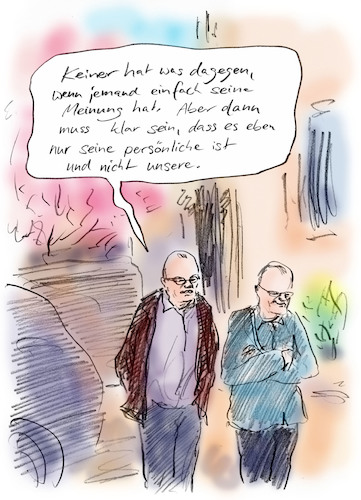 Keiner hat was dagegen,
wenn jemand einfach seine
Meinung hat. Aber dann
muss klar sein, dass es eben
nur seine persönliche ist
und nicht unsere.